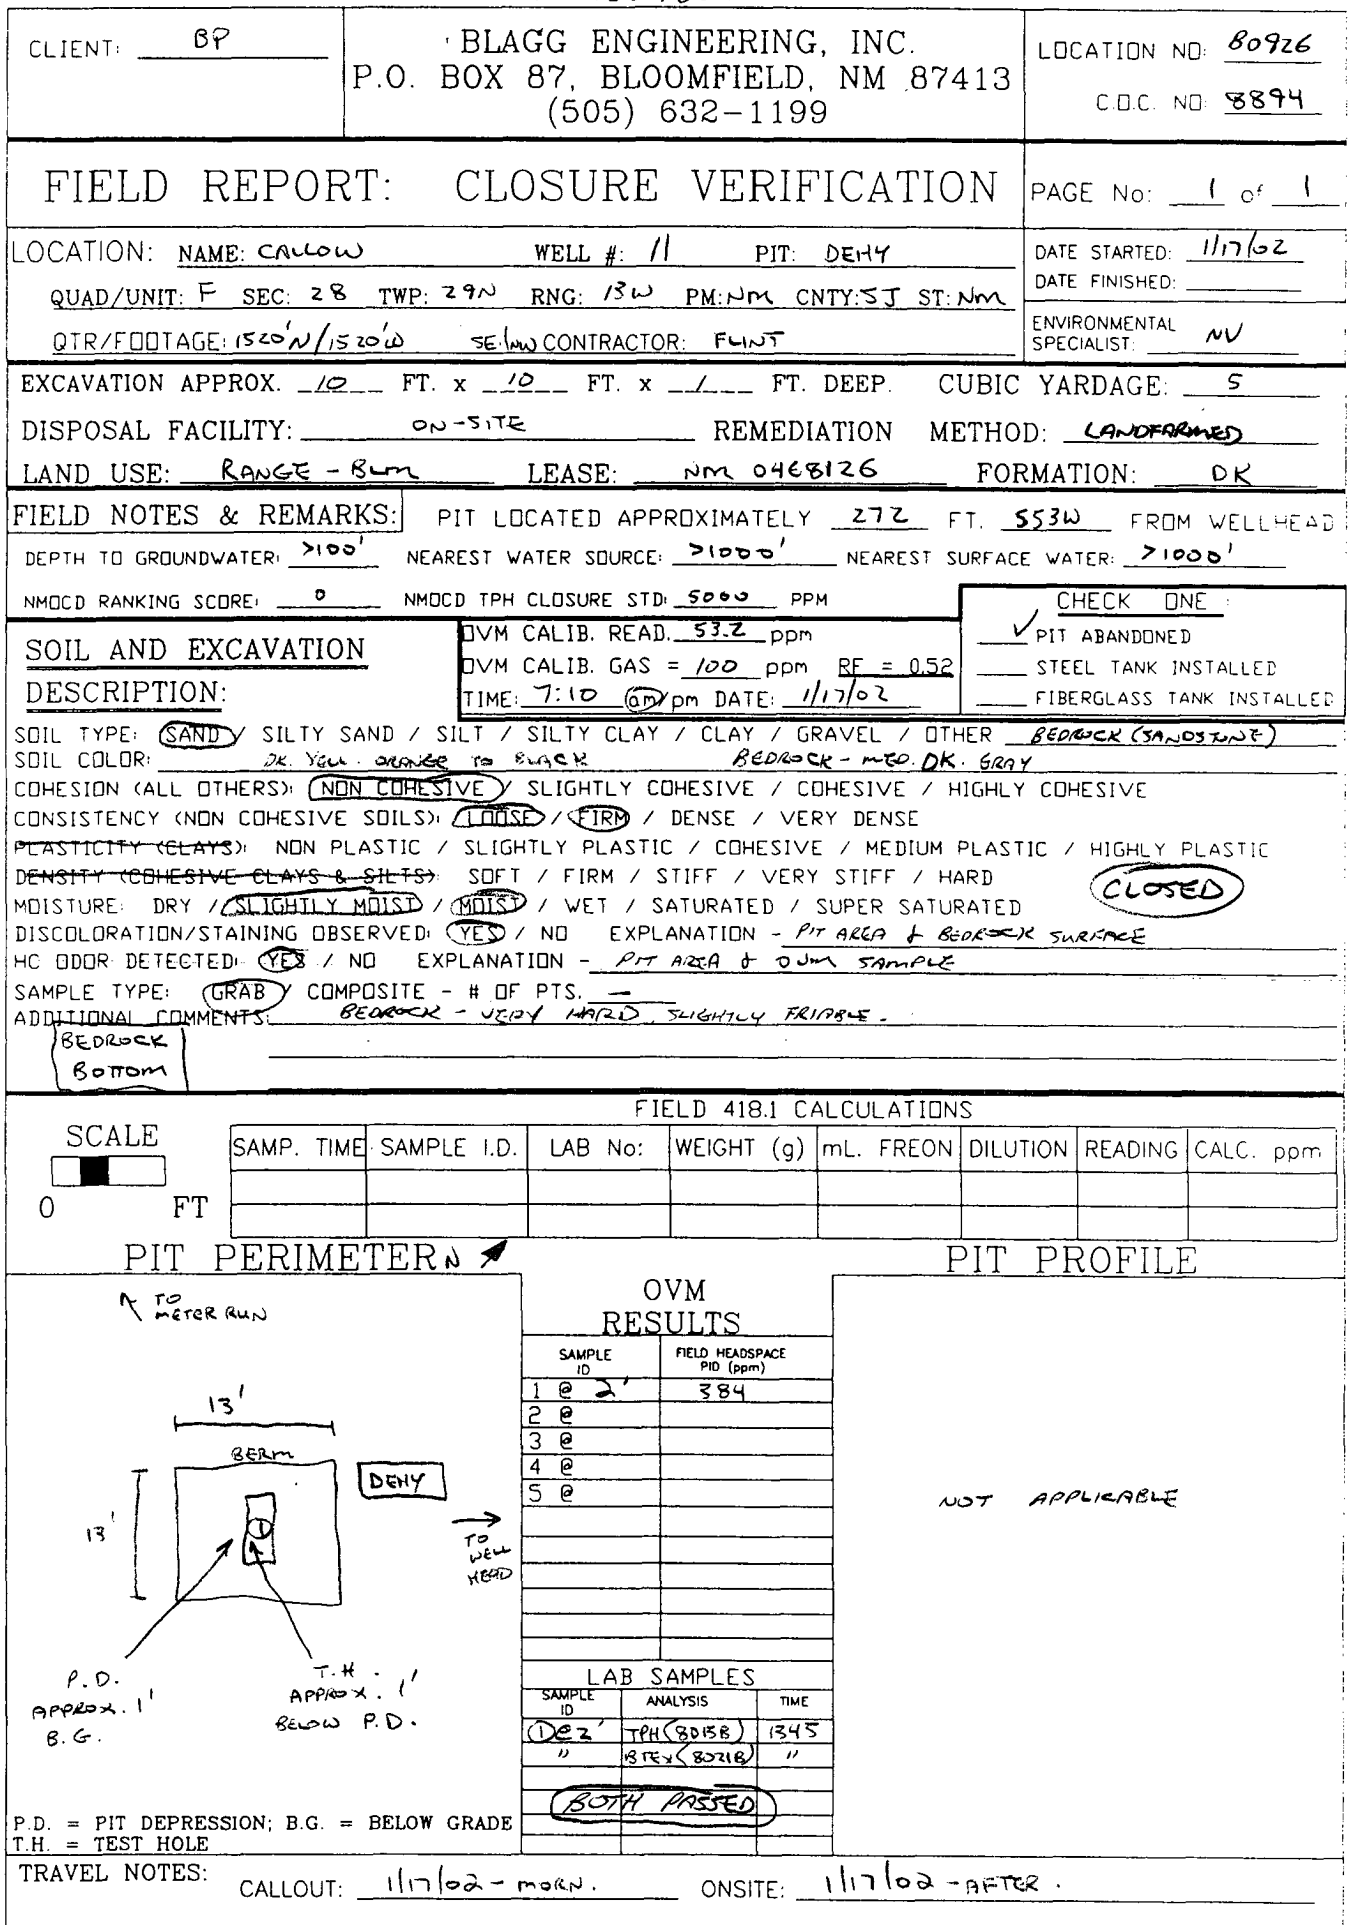 CLIENT: BP
BLAGG ENGINEERING, INC.
P.O. BOX 87, BLOOMFIELD, NM 87413
(505) 632-1199
LOCATION NO: B0926
C.O.C. NO: 8894
FIELD REPORT: CLOSURE VERIFICATION
PAGE No: 1 of 1
LOCATION: NAME: CALLOW WELL #: 11 PIT: DEHY
QUAD/UNIT: F SEC: 28 TWP: 29N RNG: 13W PM: NM CNTY: SJ ST: NM
QTR/FOOTAGE: 1520'N/1520'W SE/NW CONTRACTOR: FLINT
DATE STARTED: 1/17/02
DATE FINISHED:
ENVIRONMENTAL
SPECIALIST: NV
EXCAVATION APPROX. 10 FT. x 10 FT. x 1 FT. DEEP. CUBIC YARDAGE: 5
DISPOSAL FACILITY: ON-SITE REMEDIATION METHOD: LANDFARMED
LAND USE: RANGE - BLM LEASE: NM 0468126 FORMATION: DK
FIELD NOTES & REMARKS: PIT LOCATED APPROXIMATELY 272 FT. S53W FROM WELLHEAD
DEPTH TO GROUNDWATER: >100' NEAREST WATER SOURCE: >1000' NEAREST SURFACE WATER: >1000'
NMOCD RANKING SCORE: 0 NMOCD TPH CLOSURE STD: 5000 PPM
CHECK ONE :
✓ PIT ABANDONED
STEEL TANK INSTALLED
FIBERGLASS TANK INSTALLED
SOIL AND EXCAVATION
DESCRIPTION:
OVM CALIB. READ. 53.2 ppm
OVM CALIB. GAS = 100 ppm RF = 0.52
TIME: 7:10 am/pm DATE: 1/17/02
SOIL TYPE: SAND / SILTY SAND / SILT / SILTY CLAY / CLAY / GRAVEL / OTHER BEDROCK (SANDSTONE)
SOIL COLOR: DK. YELL. ORANGE TO BLACK BEDROCK - MED. DK. GRAY
COHESION (ALL OTHERS): NON COHESIVE / SLIGHTLY COHESIVE / COHESIVE / HIGHLY COHESIVE
CONSISTENCY (NON COHESIVE SOILS): LOOSE / FIRM / DENSE / VERY DENSE
PLASTICITY (CLAYS): NON PLASTIC / SLIGHTLY PLASTIC / COHESIVE / MEDIUM PLASTIC / HIGHLY PLASTIC
DENSITY (COHESIVE CLAYS & SILTS): SOFT / FIRM / STIFF / VERY STIFF / HARD
CLOSED
MOISTURE: DRY / SLIGHTLY MOIST / MOIST / WET / SATURATED / SUPER SATURATED
DISCOLORATION/STAINING OBSERVED: YES / NO EXPLANATION - PIT AREA & BEDROCK SURFACE
HC ODOR DETECTED: YES / NO EXPLANATION - PIT AREA & OVM SAMPLE
SAMPLE TYPE: GRAB / COMPOSITE - # OF PTS. —
ADDITIONAL COMMENTS: BEDROCK - VERY HARD, SLIGHTLY FRIABLE.
BEDROCK
BOTTOM
FIELD 418.1 CALCULATIONS
SCALE
0 FT
SAMP. TIME SAMPLE I.D. LAB No: WEIGHT (g) mL. FREON DILUTION READING CALC. ppm
PIT PERIMETER N
PIT PROFILE
TO
METER RUN
13'
BERM
DEHY
13'
1
TO
WELL
HEAD
P.D.
APPROX. 1'
B.G.
T.H.
APPROX. 1'
BELOW P.D.
OVM
RESULTS
SAMPLE ID FIELD HEADSPACE PID (ppm)
1 @ 2' 384
2 @
3 @
4 @
5 @
NOT APPLICABLE
LAB SAMPLES
SAMPLE ID ANALYSIS TIME
1@2' TPH (8015B) 1345
" BTEX (8021B) "
BOTH PASSED
P.D. = PIT DEPRESSION; B.G. = BELOW GRADE
T.H. = TEST HOLE
TRAVEL NOTES: CALLOUT: 1/17/02 - MORN. ONSITE: 1/17/02 - AFTER.